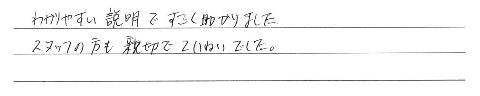 わかりやすい説明ですごく助かりました
スタッフの方も親切でていねいでした。